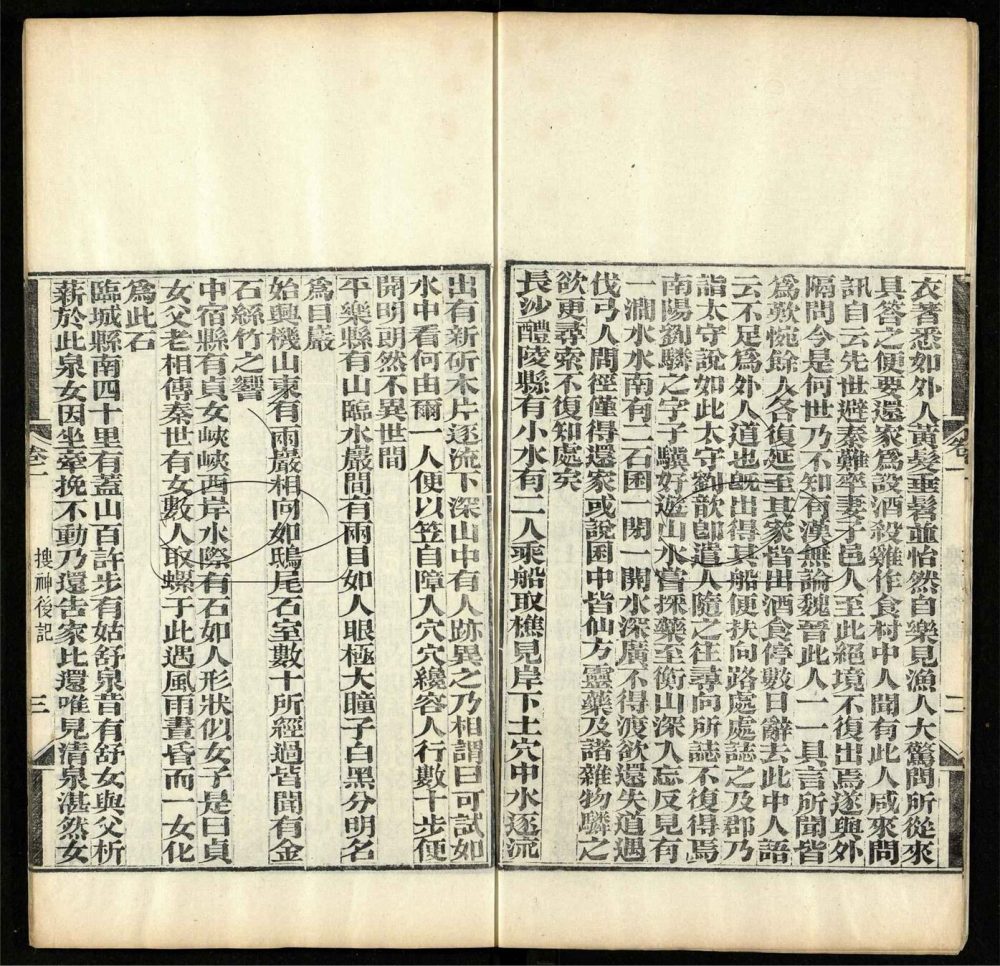 衣著悉如外人黃髮垂髫並怡然自樂見漁人大驚問所從來
具答之便要還家為設酒殺雞作食村中人聞有此人咸來問
訊自云先世避秦難率妻子邑人至此絕境不復出焉遂與外
隔問今是何世乃不知有漢無論魏晉此人一一具言所聞皆
為歎惋餘人各復延至其家皆出酒食停數日辭去此中人語
云不足為外人道也既出得其船便扶向路處處誌之及郡乃
詣太守說如此太守劉歆卽遣人隨之往尋向所誌不復得焉
南陽劉驎之字子驥好遊山水嘗採藥至衡山深入忘反見有
一澗水水南有二石囷一閉一開水深廣不得渡欲還失道遇
伐弓人問徑僅得還家或說囷中皆仙方靈藥及諸雜物驎之
欲更尋索不復知處矣
長沙醴陵縣有小水有二人乘船取樵見岸下土穴中水逐流
卷一
二
出有新斫木片逐流下深山中有人跡異之乃相謂曰可試如
水中看何由爾一人便以笠自障入穴穴纔容人行數十步便
開明朗然不異世間
平樂縣有山臨水巖間有兩目如人眼極大瞳子白黑分明名
為目巖
始興機山東有兩巖相向如鴟尾石室數十所經過皆聞有金
石絲竹之響
中宿縣有貞女峽峽西岸水際有石如人形狀似女子是曰貞
女父老相傳秦世有女數人取螺于此遇風雨晝昏而一女化
為此石
臨城縣南四十里有蓋山百許步有姑舒泉昔有舒女與父析
薪於此泉女因坐牽挽不動乃還告家比還唯見清泉湛然女
卷一
搜神後記
三